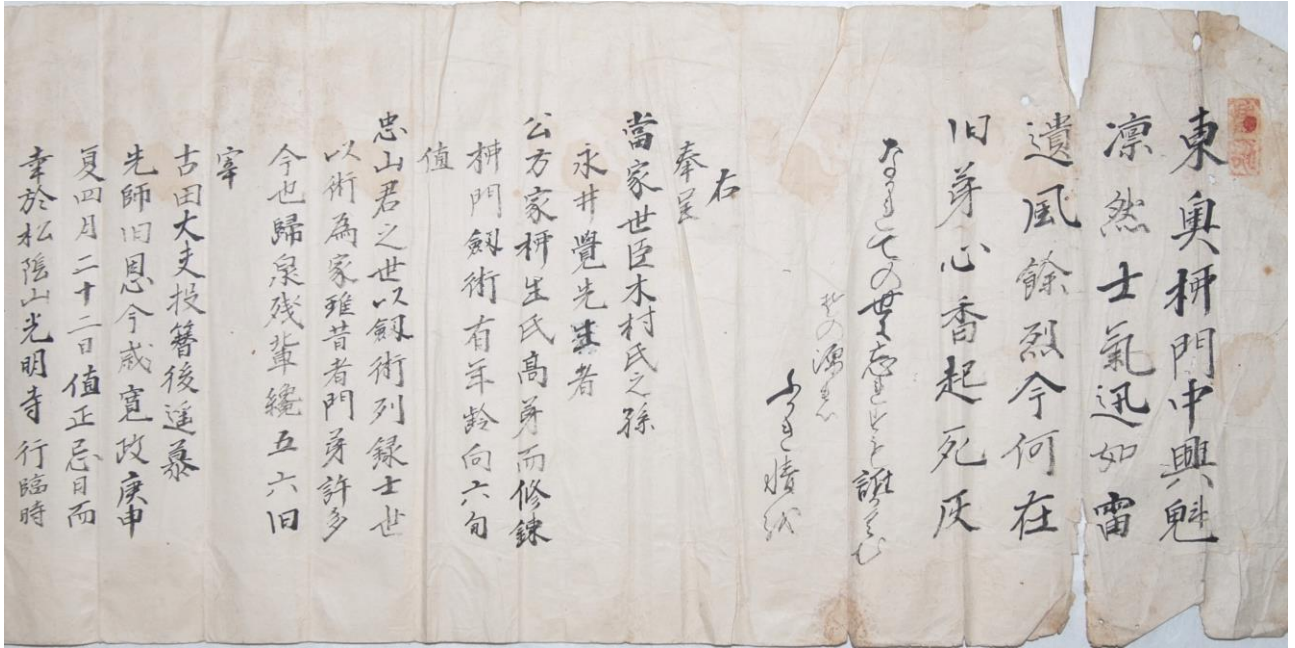 東奥柳門中興魁
凛然士氣迅如雷
遺風餘烈今何在
旧弟心香起死灰
右
奉呈
當家世臣木村氏之孫
永井覺先生者
公方家柳生氏高弟而修錬
柳門劔術有年齢向六旬
値
忠山君之世以劔術列録士世
以術為家雖昔者門弟許多
今也歸泉残輩纔五六旧
宰
古田大夫投簪後遥慕
先師旧恩今歳寛政庚申
夏四月二十二日値正忌日而
幸於松陰山光明寺行臨時